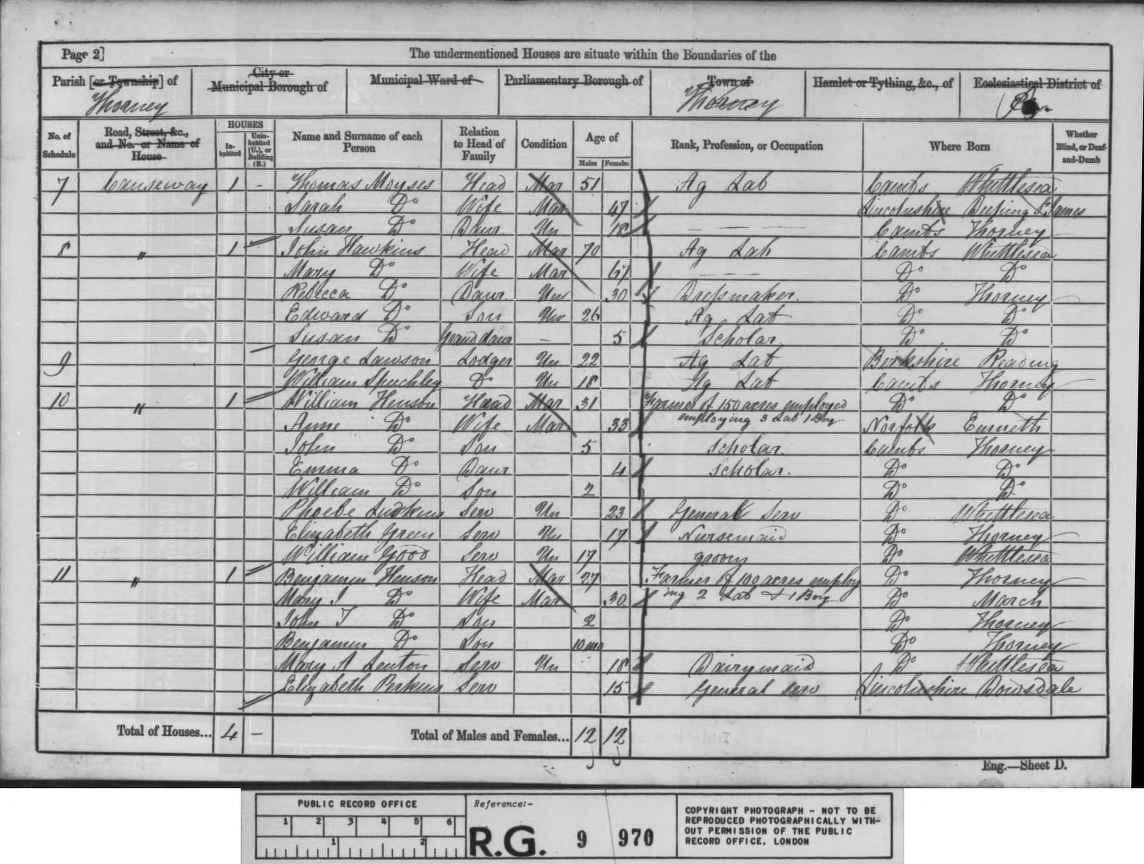 Page 2] The undermentioned Houses are situate within the Boundaries of the
Parish [or Township] of City or Municipal Borough of Municipal Ward of Parliamentary Borough of Town of Hamlet or Tything, &c., of Ecclesiastical District of
Thorney Thorney
No. of Schedule Road, Street, &c., and No. or Name of House HOUSES Inhabited Uninhabited (U.), or Building (B.) Name and Surname of each Person Relation to Head of Family Condition Age of Males Females Rank, Profession, or Occupation Where Born Whether Blind, or Deaf-and-Dumb
7 Causeway 1 - Thomas Moyses Head Mar 51 Ag Lab Cambs Whittlesea
Sarah Do Wife Mar 47 Lincolnshire Deeping St James
Susan Do Daur Un 18 Cambs Thorney
8 " 1 John Hawkins Head Mar 70 Ag Lab Cambs Whittlesea
Mary Do Wife Mar 61 Do Do
Rebecca Do Daur Un 30 Dressmaker Do Thorney
Edward Do Son Un 26 Ag Lab Do Do
Susan Do Grand daur - 5 Scholar Do Do
9 George Lawson Lodger Un 22 Ag Lab Berkshire Reading
William Speechley Do Un 18 Ag Lab Cambs Thorney
10 " 1 William Henson Head Mar 31 Farmer of 150 acres employed Do Do
Anne Do Wife Mar 33 employing 3 Lab 1 Boy Norfolk Emneth
John Do Son 5 Scholar Cambs Thorney
Emma Do Daur 4 Scholar Do Do
William Do Son 2 Do Do
Phoebe Ludkins Serv Un 23 General Serv Do Whittlesea
Elizabeth Green Serv Un 17 Nursemaid Do Thorney
William Good Serv Un 17 groom Do Whittlesea
11 " 1 Benjamin Henson Head Mar 27 Farmer of 100 acres employ Do Thorney
Mary I Do Wife Mar 30 ing 2 Lab & 1 Boy Do March
John T Do Son 2 Do Thorney
Benjamin Do Son 10 mo Do Thorney
Mary A Lenton Serv Un 18 Dairymaid Do Whittlesea
Elizabeth Perkins Serv 15 General Serv Lincolnshire Dowsdale
Total of Houses... 4 - Total of Males and Females... 12 12
Eng.—Sheet D.
PUBLIC RECORD OFFICE
1 2 3 4 5 6
1 2
Reference:-
R.G. 9 970
COPYRIGHT PHOTOGRAPH - NOT TO BE
REPRODUCED PHOTOGRAPHICALLY WITH-
OUT PERMISSION OF THE PUBLIC
RECORD OFFICE, LONDON